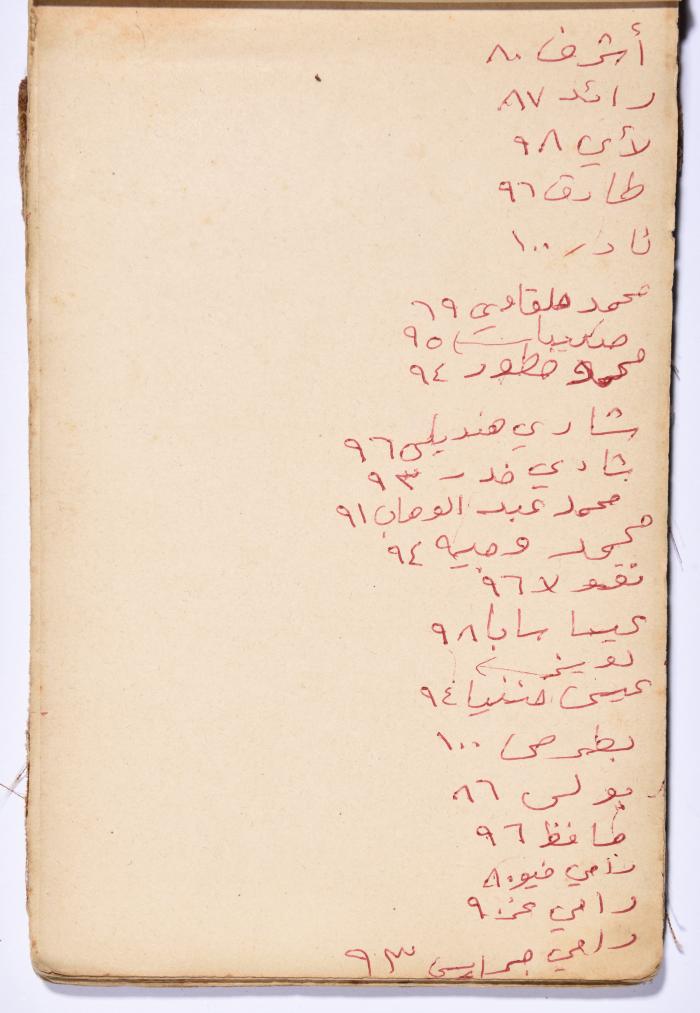 أشرف ٨٠
رائد ٨٧
لأي ٩٨
طارق ٩٦
نادر ١٠٠
محمد ٦٩
٩٥
محمد ٩٤
شادي هنديلي ٩٦
شادي خدر ٩٣
محمد عبد الوهاب ٩١
محمد وجيه ٩٤
نقولا ٩٦
عيسا سابا ٩٨
عيسى حننيا ٩٤
بطرس ١٠٠
بولس ٨٦
حافظ ٩٦
رامي ٨٠
رامي
رامي جرايسي ٩٣